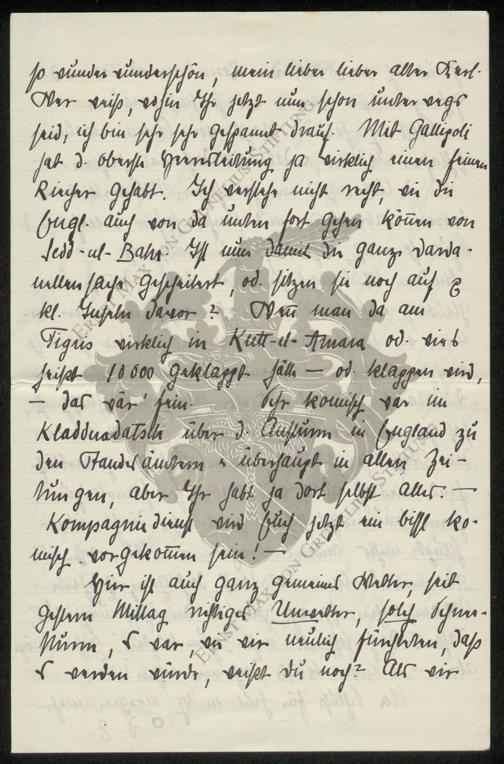 so wunderwunderschön, mein lieber lieber alter Kerl.
Wer weiß, wohin Ihr jetzt nun schon unterwegs
seid, ich bin sehr sehr gespannt drauf. Mit Gallipoli
hat d. oberste Heeresleitung ja wirklich einen feinen
Riecher gehabt. Ich verstehe nicht recht, wie die
Engl. auch von da unten fort gehen können von
Sedd-ul-Bahr. Ist nun damit die ganze Darda-
nellensache gescheitert, od. sitzen sie noch auf
kl. Inseln davor? Wenn man da am
Tigris wirklich in Kutt-el-Amara od. wies
heißt 10 000 geklappt hätte — od. klappen wird,
— das wär' fein. Sehr komisch war im
Kladdradatsch über d. Ansturm in England zu
den Standesämtern u. überhaupt in allen Zei-
tungen, aber Ihr habt ja dort selbst alles. —
Kompagniedienst wird Euch jetzt ein bissl ko-
misch vorgekommen sein! —
Hier ist auch ganz gemeines Wetter, seit
gestern Mittag richtiges Unwetter, solch Schnee-
sturm, es war, wie wir neulich fürchteten, daß
es werden würde, weißt du noch? Als wir
ERNST MAX VON GRUNELIUS-STIFTUNG
ERNST MAX VON GRUNELIUS-STIFTUNG